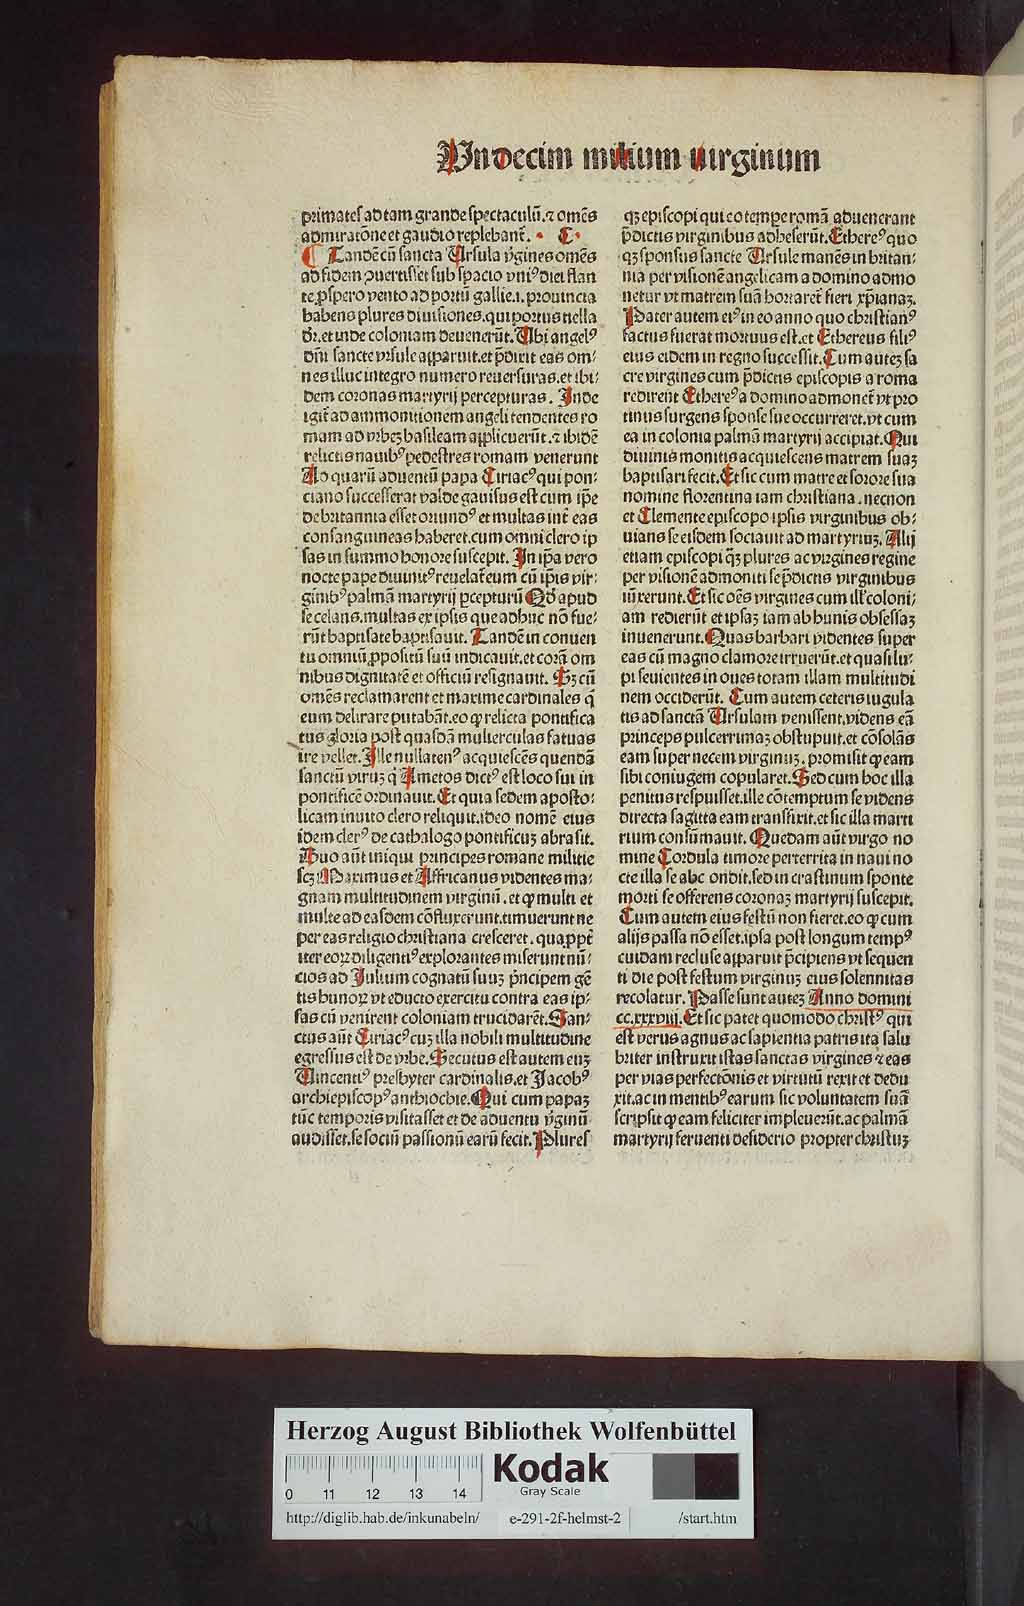 Undecim milium virginum
primates ad tam grande spectaculū.⁊ omēs
admiratōne et gaudio replebant̄. C
Tandē cū sancta Ursula ỹgines omēs
ad fidem ꝯuertisset sub spacio vniꝰ diei flan
te ꝓspero vento ad portū gallie.i.prouincia
habens plures diuisiones.qui portus tiella
dr̄.et inde coloniam deuenerūt.Ubi angelꝰ
dn̄i sancte vrsule apparuit.et p̄dixit eas om⸗
nes illuc integro numero reuersuras.et ibi⸗
dem coronas martyrij percepturas. Inde
igit̄ ad ammonitionem angeli tendentes ro
mam ad vrbeꝫ basileam applicuerūt.⁊ ibidē
relictis nauibꝰ pedestres romam venerunt
Ad quarū aduentū papa Ciriacꝰ qui pon⸗
ciano successerat valde gauisus est cum ip̄e
de britannia esset oriundꝰ et multas int̄ eas
consanguineas haberet.cum omni clero ip
sas in summo honore suscepit. In ip̄a vero
nocte pape diuinitꝰ reuelat̄ eum cū ip̄is vir⸗
ginibꝰ palmā martyrij ꝑcepturū Qd̄ apud
se celans.multas ex ipsis que adhuc nō fue⸗
rūt baptisate baptisauit. Tandē in conuen
tu omniū ꝓpositū suū indicauit.et corā om
nibus dignitatē et officiū resignauit. Sꝫ cū
omēs reclamarent et maxime cardinales q̄
eum delirare putabāt.eo ꝙ relicta pontifica
tus gloria post quasdā mulierculas fatuas
ire vellet.Ille nullatenꝰ acquiescēs quendā
sanctū viruꝫ q̄ Ametos dictꝰ est loco sui in
pontificē ordinauit.Et quia sedem aposto⸗
licam inuito clero reliquit.ideo nomē eius
idem clerꝰ de cathalogo pontificuꝫ abrasit.
Duo aūt iniqui principes romane militie
scꝫ Maximus et Affricanus videntes ma⸗
gnam multitudinem virginū.et ꝙ multi et
multe ad easdem cōfluxerunt.timuerunt ne
per eas religio christiana cresceret.quaꝓpt̄
iter eoꝝ diligentiꝰ explorantes miserunt nū⸗
cios ad Julium cognatū suuꝫ p̄ncipem gē
tis hunoꝝ vt educto exercitu contra eas ip⸗
sas cū venirent coloniam trucidarēt.San⸗
ctus aūt Ciriacꝰ cuꝫ illa nobili multitudine
egressus est de vrbe.Secutus est autem euꝫ
Vincentiꝰ presbyter cardinalis.et Jacobꝰ
archiepiscopꝰ anthiochie.Qui cum papaꝫ
tūc temporis visitasset et de aduentu ỹginū
audisset.se sociū passionū earū fecit.Plures
qꝫ episcopi qui eo tempe romā aduenerant
p̄dictis virginibus adheserūt.Ethereꝰ quo
qꝫ sponsus sancte Ursule manēs in britan⸗
nia per visionē angelicam a domino admo
netur vt matrem suā hortaret̄ fieri xp̄ianaꝫ.
Pater autem eiꝰ in eo anno quo christianꝰ
factus fuerat mortuus est.et Ethereus filiꝰ
eius eidem in regno successit.Cum auteꝫ sa
cre virgines cum p̄dictis episcopis a roma
redirent Ethereꝰ a domino admonet̄ vt pro
tinus surgens sponse sue occurreret.vt cum
ea in colonia palmā martyrij accipiat.Qui
diuinis monitis acquiescens matrem suaꝫ
baptisari fecit.Et sic cum matre et sorore sua
nomine florentina iam christiana.necnon
et Clemente episcopo ipsis virginibus ob⸗
uians se eisdem sociauit ad martyriuꝫ.Alij
etiam episcopi qꝫ plures ac virgines regine
per visionē admoniti se p̄dictis virginibus
iūxerunt.Et sic oēs virgines cum ill' coloni⸗
am redierūt et ipsaꝫ iam ab hunis obsessaꝫ
inuenerunt.Quas barbari videntes super
eas cū magno clamore irruerūt.et quasi lu⸗
pi seuientes in oues totam illam multitudi
nem occiderūt. Cum autem ceteris iugula
tis ad sanctā Ursulam venissent.videns eā
princeps pulcerrimaꝫ obstupuit.et cōsolās
eam super necem virginuꝫ.promisit ꝙ eam
sibi coniugem copularet.Sed cum hoc illa
penitus respuisset.ille cōtemptum se videns
directa sagitta eam transfixit.et sic illa marti
rium consūmauit. Quedam aūt virgo no
mine Cordula timore perterrita in naui no
cte illa se abscondit.sed in crastinum sponte
morti se offerens coronaꝫ martyrij suscepit.
Cum autem eius festū non fieret.eo ꝙ cum
alijs passa nō esset.ipsa post longum tempꝰ
cuidam recluse apparuit p̄cipiens vt sequen
ti die post festum virginuꝫ eius solennitas
recolatur. Passe sunt auteꝫ Anno domini
cc.xxxviij.Et sic patet quomodo christꝰ qui
est verus agnus ac sapientia patris ita salu
briter instruxit istas sanctas virgines ⁊ eas
per vias perfectōnis et virtutū rexit et dedu
xit.ac in mentibꝰ earum sic voluntatem suā
scripsit ꝙ eam feliciter impleuerūt.ac palmā
martyrij feruenti desiderio propter christuꝫ
Herzog August Bibliothek Wolfenbüttel
Kodak
Gray Scale
0 11 12 13 14
http://diglib.hab.de/inkunabeln/ e-291-2f-helmst-2 /start.htm